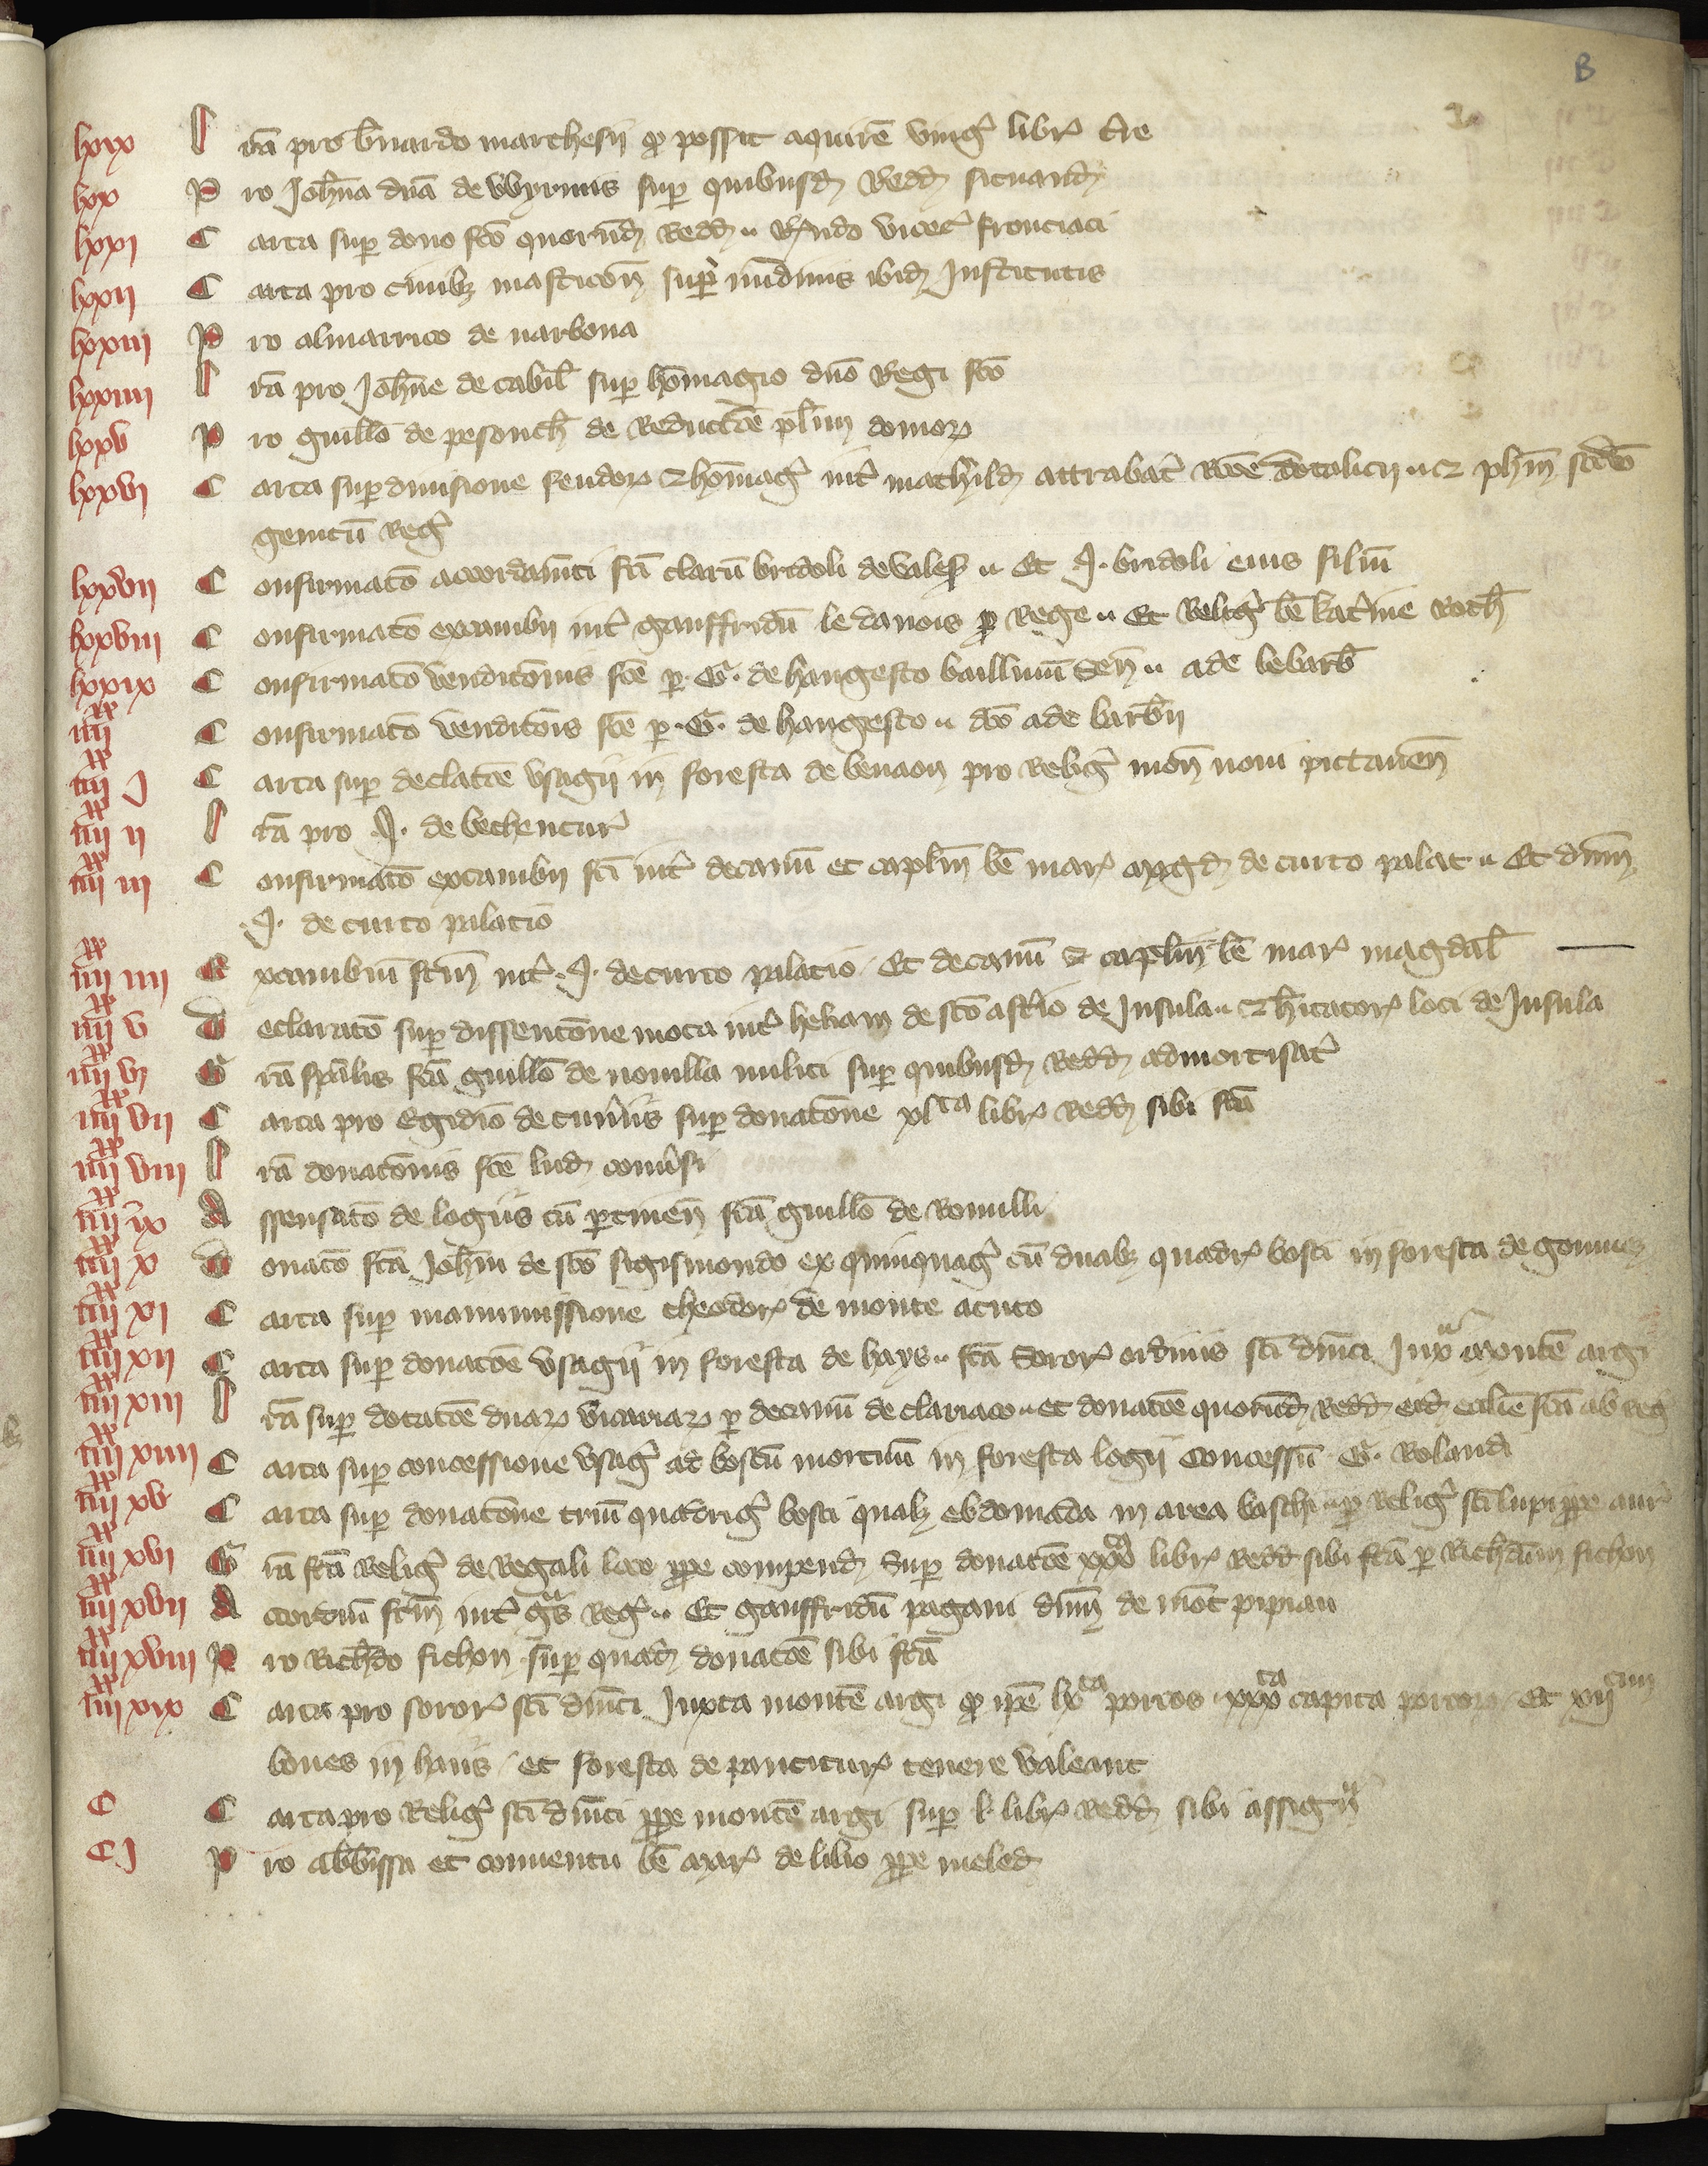 B
lxix lrã pro b̃nardo marchesii ꝙ possit aquirẽ vingᷓ librᷓ t̃re
lxx Pro Joh̃na dñã de Wyrmis suꝑ quibusdꝫ Reddꝫ situandꝫ
lxxi Carta suꝑ dono f̃co quorundꝫ Reddꝫ .. Rᷓndo vicec̃ fronciaci
lxxii Carta pro ciuibꝫ masticoñ suꝑ nundinis ibidꝫ Institutis
lxxiii Pro almarrico de narbona
lxxiiii lrã pro Joh̃ne de cabil̃ suꝑ hõmagio dño Regi f̃co
lxxv Pro guill̃o de pesouch̃ de Reductõe pl̃im domoꝝ
lxxvi Carta suꝑ diuisione feudoꝝ ⁊ hõmagᷓ int̃ mathildꝫ attrabat̃ Rõe dotalicii .. ⁊ ph̃m sc̃do
genitũ Regᷓ
lxxvii Confirmatõ accordam̃ti fc̃i clarũ bridoli de vales̃ .. Et J. bridoli eius filiũ
lxxviii Confirmatõ excambii int̃ gauffridũ le danois ꝓ Rege .. Et Religᷓ bẽ kat̃ine Roth̃
lxxix Confirmatõ venditõnis fc̃e ꝑ .G. de hangesto bailliuũ Señ .. ade lebarb̃
iiiiˣˣ Confirmatõ venditõis fc̃e ꝑ .G. de hangesto .. dc̃o ade barb̃ii
iiiiˣˣ J Carta suꝑ declatõe vsagii in foresta de benaon pro Religᷓ moñ noui pictaueñ
iiiiˣˣ ii lrã pro .J. de bethencur̃
iiiiˣˣ iii Confirmatõ excambii fc̃i int̃ decanũ et capl̃m bẽ marᷓ magdꝫ de curto palat̃ .. Et dñm
.J. de curto palatio
iiiiˣˣ iiii Excambiũ fc̃m int̃ .J. de curto palatio / Et decanũ ⁊ capl̃m bẽ marᷓ magdal̃
iiiiˣˣ v Declaratõ suꝑ dissentõne mota int̃ heliam de sc̃o ast̃io de Insula .. ⁊ h̃itatorᷓ loci de Insula
iiiiˣˣ vi Grã sp̃alis fc̃a guill̃o de nouilla militi suꝑ quibusdꝫ Reddꝫ admortisat̃
iiiiˣˣ vii Carta pro Egidio de cum̃is suꝑ donatõne xlᵗᵃ librᷓ Reddꝫ sibi fc̃a
iiiiˣˣ viii lrã donatõnis fc̃e ludꝫ com̃si
iiiiˣˣ ix Assensatõ de logiis cũ ꝑtineñ fc̃a guill̃o de Romilli
iiiiˣˣ x Donatõ fc̃a Joh̃ni de sc̃o sigismondo ex quinquagᷓ cũ duabꝫ quadrᷓ bosci in foresta de gonmetz
iiiiˣˣ xi Carta suꝑ manumissione theodorᷓ de monte acuto
iiiiˣˣ xii Carta suꝑ donatõe vsagii in foresta de hays .. fc̃a Sororᷓ ordinis sc̃i dñici Juxᵃ montẽ argi
iiiiˣˣ xiii lrã suꝑ dotatõe duaꝝ vicariaꝝ ꝑ decanũ de cleriaco .. et donatõe quorundꝫ Reddꝫ eidꝫ ecclie fc̃a ab reg
iiiiˣˣ xiiii Carta suꝑ concessione vsagᷓ ad boscũ mortuũ in foresta logii Concessũ .G. Rolandi
iiiiˣˣ xv Carta suꝑ donatõne triũ quadrigᷓ bosci qualꝫ ebdomada in area baschi .. ꝓ Religᷓ sc̃i lupi ꝓpe aur̃
iiiiˣˣ xvi Grã fc̃a Religᷓ de Regali loco ꝓpe compendꝫ Suꝑ donatõe xxx librᷓ Reddꝫ sibi fc̃a ꝑ Rich̃dum fichon
iiiiˣˣ xvii Accordũ fc̃m int̃ gẽs Regᷓ .. Et gauffridũ pagani dñm de mõt pipiau
iiiiˣˣ xviii Pro Rich̃do fichon suꝑ quadꝫ donatõe sibi fc̃a
iiiiˣˣ xix Carta pro sororᷓ sc̃i dñici Iuxta montẽ argi ꝙ ip̃e lxᵗᵃ porcos .. xxxᵗᵃ capita porcoꝝ / Et xiiᶜⁱᵐ
boues in haiis / et foresta de pauciturᷓ tenere valeant
C Carta pro Religᷓ sc̃i dñici ꝓpe montẽ argi suꝑ l. librᷓ Reddꝫ sibi assignᵗ
CJ Pro abb̃issa et conuentu bẽ marᷓ de lilio ꝓpe meled